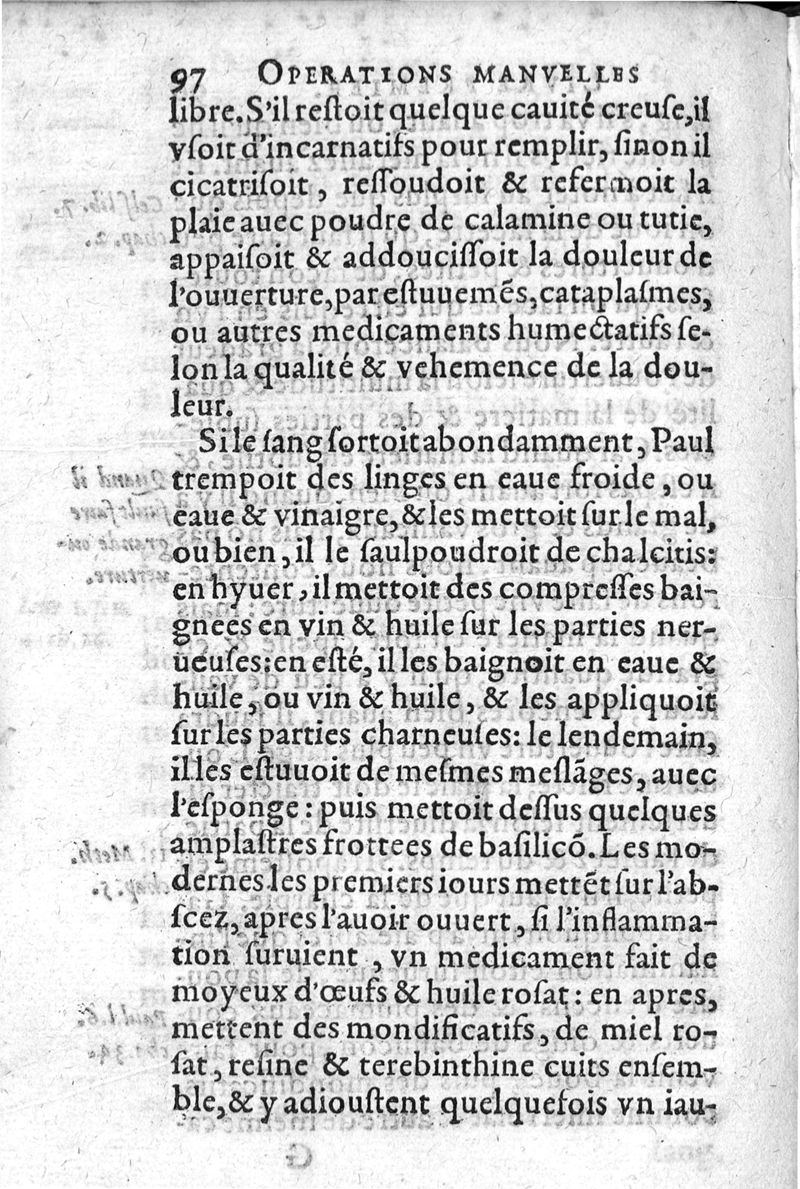 97 OPERATIONS MANVELLES
libre. S'il reſtoit quelque cauité creuſe, il
vſoit d'incarnatifs pour remplir, ſinon il
cicatriſoit, reſſoudoit & refermoit la
plaie auec poudre de calamine ou tutie,
appaiſoit & addouciſſoit la douleur de
l'ouuerture, par eſtuuemẽs, cataplaſmes,
ou autres medicaments humectatifs ſe-
lon la qualité & vehemence de la dou-
leur.
Si le ſang ſortoit abondamment, Paul
trempoit des linges en eaue froide, ou
eaue & vinaigre, & les mettoit ſur le mal,
ou bien, il le ſaulpoudroit de chalcitis:
en hyuer, il mettoit des compreſſes bai-
gnees en vin & huile ſur les parties ner-
ueuſes: en eſté, il les baignoit en eaue &
huile, ou vin & huile, & les appliquoit
ſur les parties charneuſes: le lendemain,
il les eſtuuoit de meſmes meſlãges, auec
l'eſponge: puis mettoit deſſus quelques
amplaſtres frottees de baſilicõ. Les mo-
dernes les premiers iours mettẽt ſur l'ab-
ſcez, apres l'auoir ouuert, ſi l'inflamma-
tion ſuruient, vn medicament fait de
moyeux d'œufs & huile roſat: en apres,
mettent des mondificatifs, de miel ro-
ſat, reſine & terebinthine cuits enſem-
ble, & y adiouſtent quelquefois vn iau-